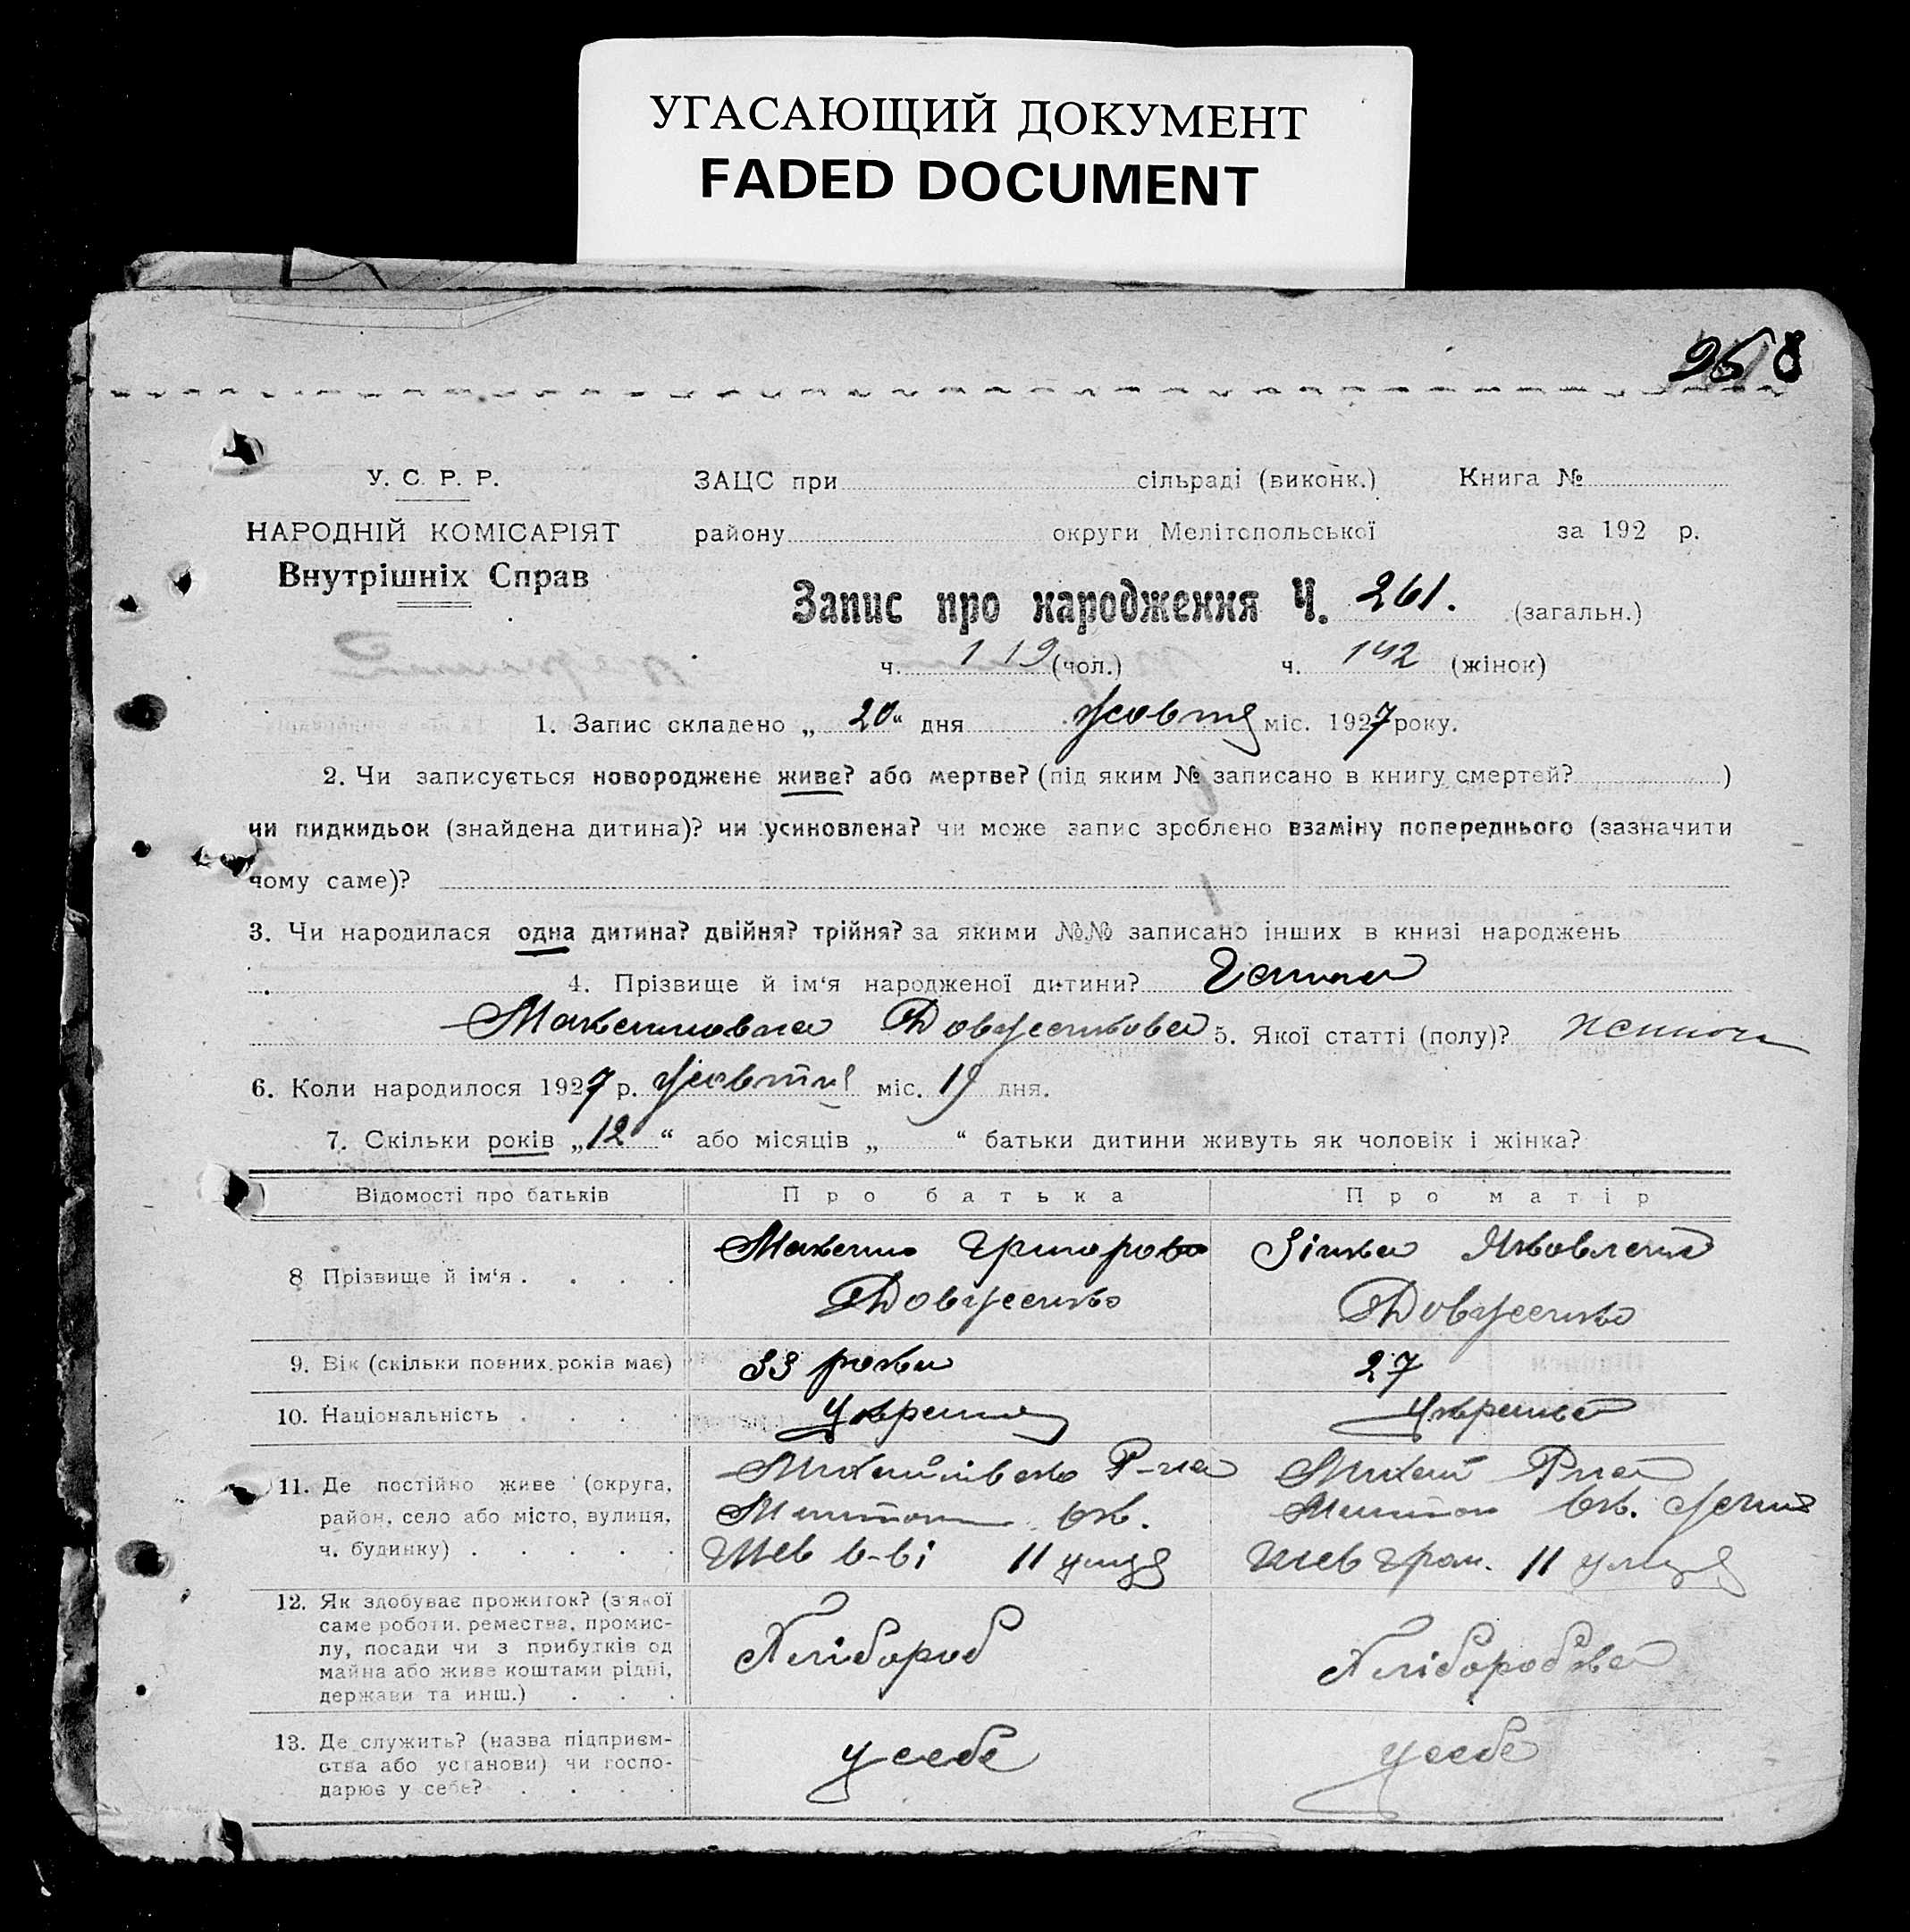 УГАСАЮЩИЙ ДОКУМЕНТ
FADED DOCUMENT
У. С. Р. Р.
ЗАЦС при сільраді (виконк.) Книга №
НАРОДНІЙ КОМІСАРІЯТ
району округи Мелітопольської за 192 р.
Внутрішніх Справ
Запис про народження Ч. 261. (загальн.)
ч. 119 (чол.) ч. 142 (жінок)
1. Запис складено „ 20 “ дня жовтня міс. 1927 року.
2. Чи записується новороджене живе? або мертве? (під яким № записано в книгу смертей? )
чи пидкидьок (знайдена дитина)? чи усиновлена? чи може запис зроблено взаміну попереднього (зазначити
чому саме)?
3. Чи народилася одна дитина? двійня? трійня? за якими №№ записано інших в книзі народжень
4. Прізвище й ім‘я народженої дитини? Ганна
Макимовна Довженкова 5. Якої статті (полу)?
6. Коли народилося 1927 р. жовтня міс. 19 дня.
7. Скільки років „ 12 “ або місяців „ “ батьки дитини живуть як чоловік і жінка?
Відомості про батьків Про батька Про матір
8 Прізвище й ім‘я . . . .
Маким Григоров Зінка Яковлена
Довженко Довженко
9. Вік (скільки повних років має) 33 роки 27
10. Національність . . . . Українець Українка
11. Де постійно живе (округа,
район, село або місто, вулиця,
ч. будинку) . . . . .
Михайлівсько Р-на Михай Рна
Мелітоп ок. Мелітоп ок.
Шев 11 улиця Шев гром. 11 улиця
12. Як здобуває прожиток? (з якої
саме роботи, ремества, промис-
лу, посади чи з прибутків од
майна або живе коштами рідні,
держави та инш.) . . .
Хлібороб Хліборобка
13. Де служить? (назва підприєм-
ства або установи) чи госпо-
дарює у себе? . . . .
у себе у себе